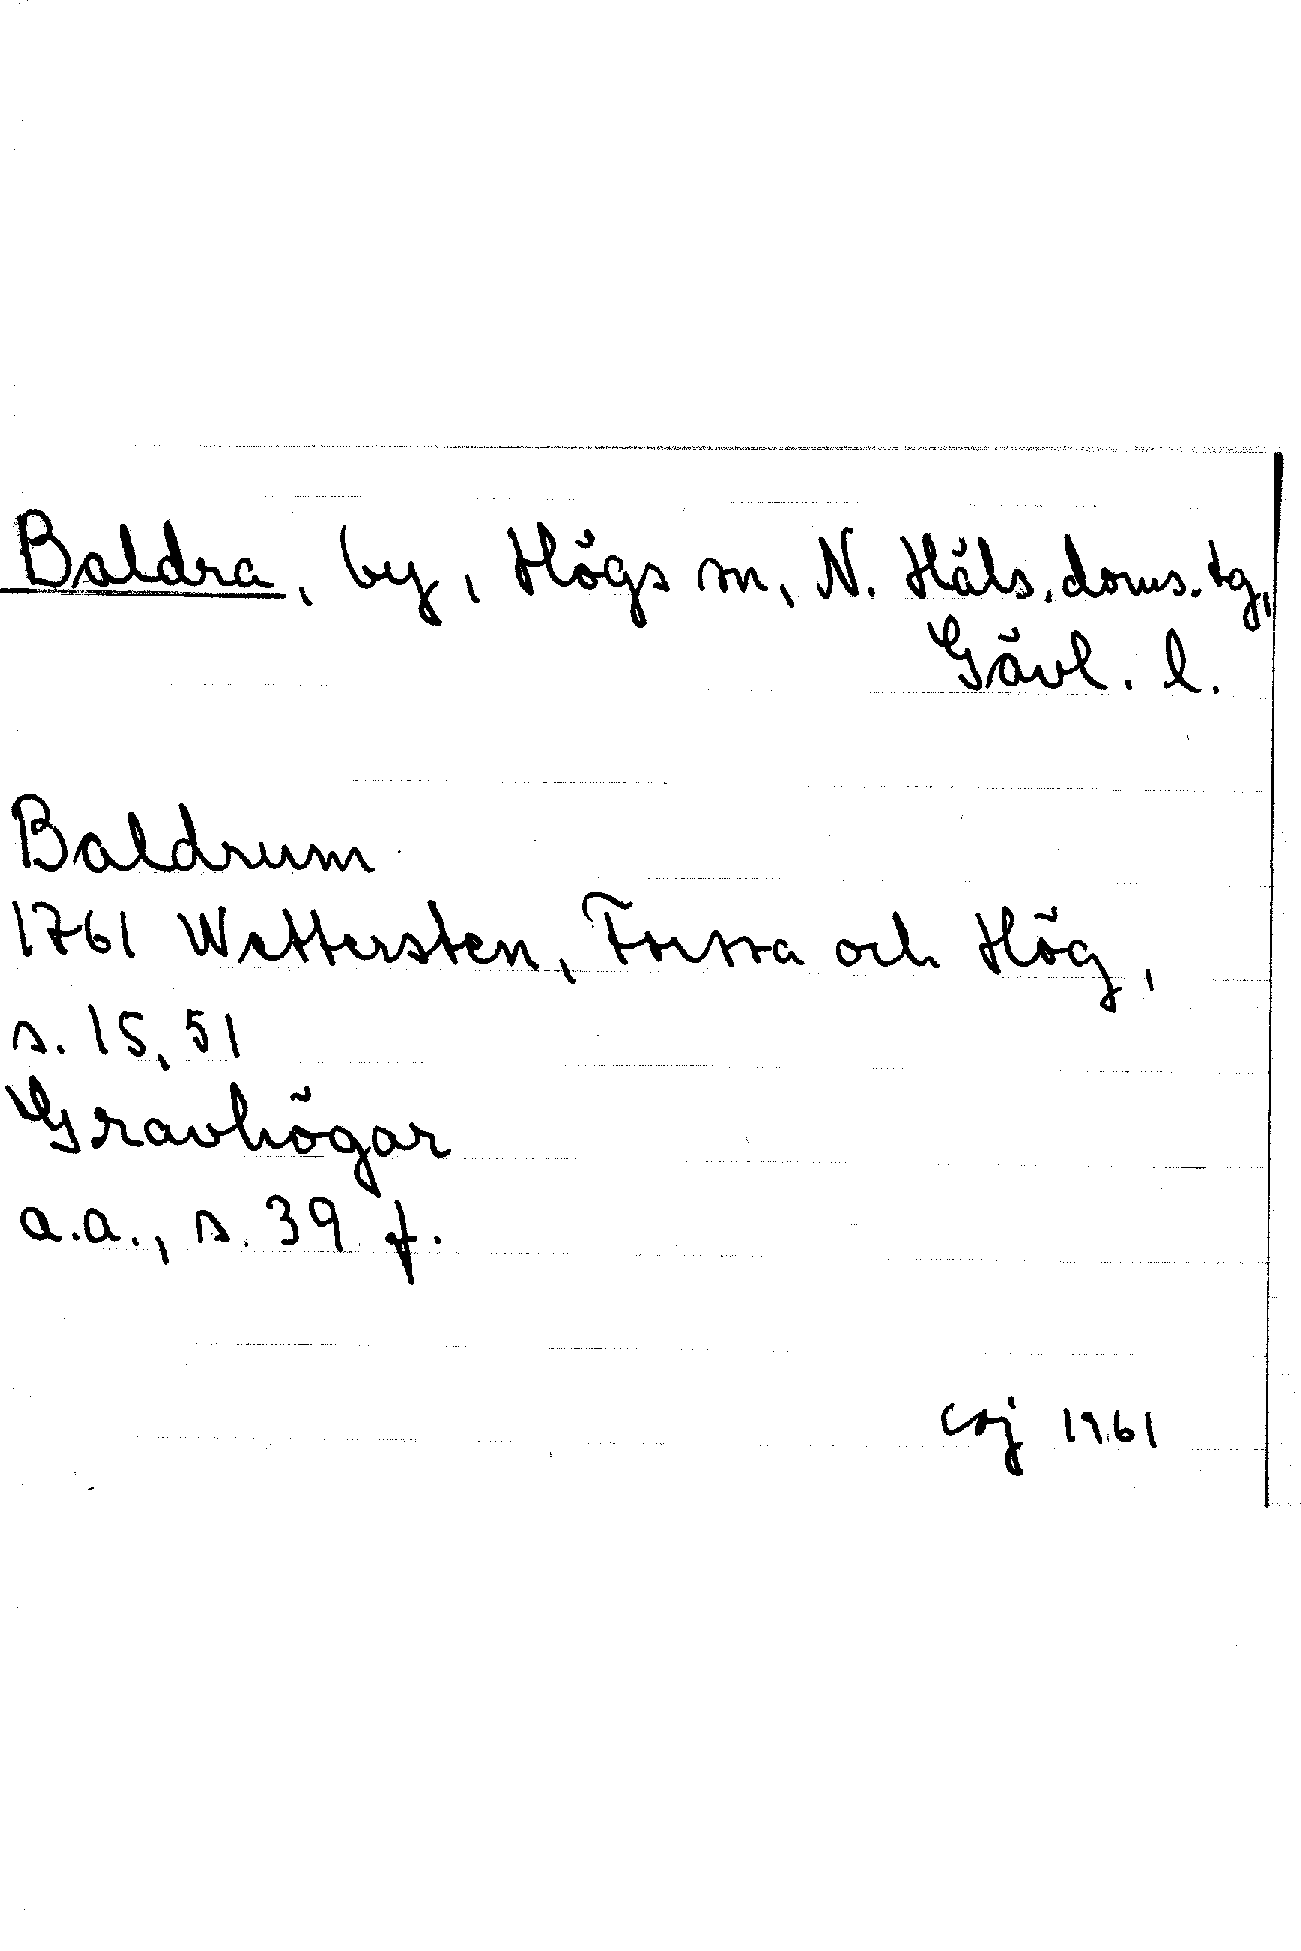 Baldra, by, Högs sn, N. Häls. doms. tg,
Gävl. l.
Baldrum
1761 Wettersten, Forssa och Hög,
s. 15, 51
Gravhögar
a.a., s. 39 f.
csj 1961